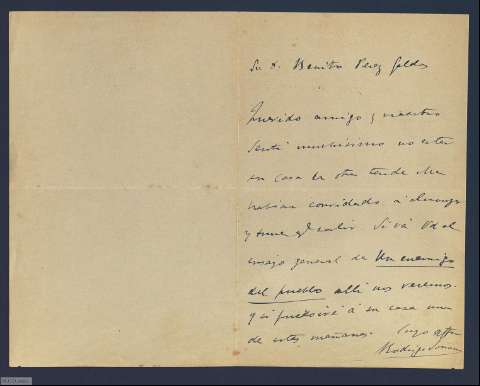 Sr. D. Benito Perez Galdos
Querido amigo y maestro
Sentí muchisimo no estar
en casa la otra tarde. Me
habían convidado á almorzar
y tuve q salir. Si vá Vd al
ensayo general de Un enemigo
del pueblo alli nos veremos.
Y si pasaré á su casa una
de estas mañanas. Suyo affmo
Rodrigo Soriano